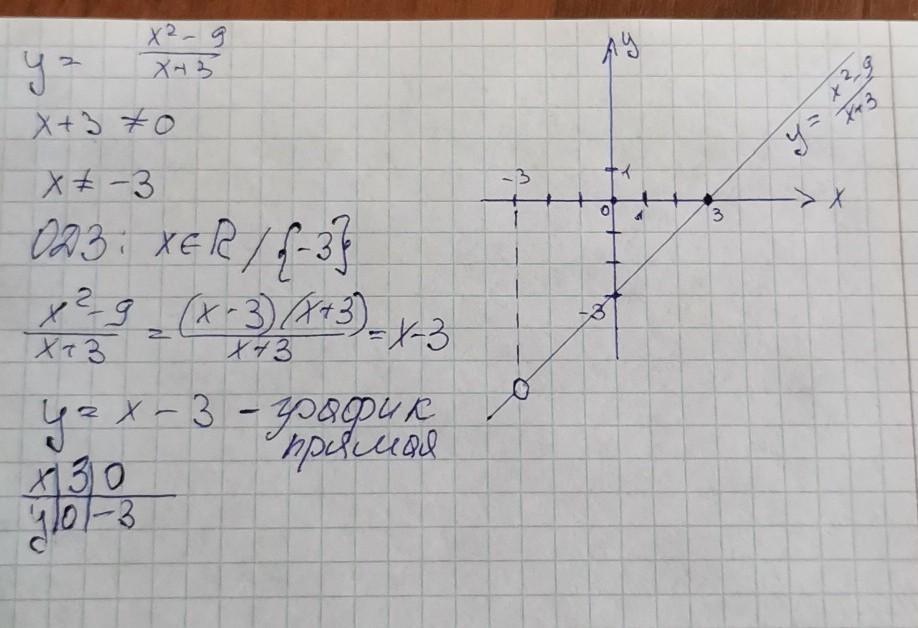 y = x² - 9 / x + 3
x + 3 ≠ 0
x ≠ -3
ОДЗ: x ∈ R / {-3}
x² - 9 / x + 3 = (x - 3)(x + 3) / x + 3 = x - 3
y = x - 3 - график
прямая
x | 3 | 0
y | 0 | -3
y
y = x² - 9 / x + 3
1
-3
0
1
3
x
-3